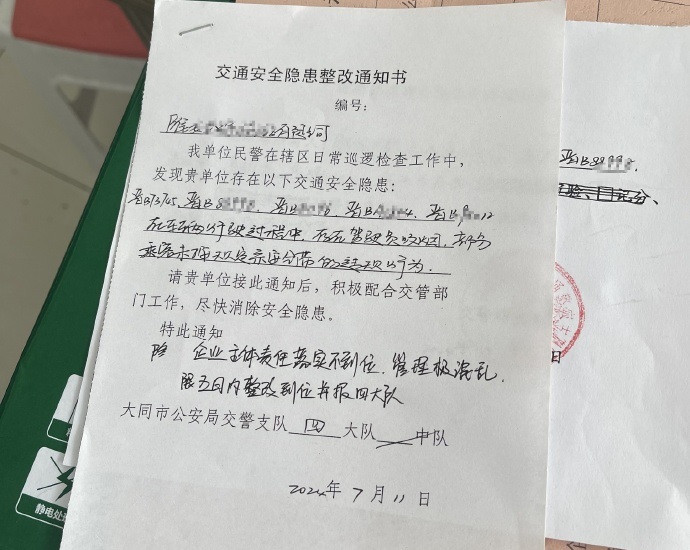 交通安全隐患整改通知书
编号：
有限公司
我单位民警在辖区日常巡逻检查工作中，
发现贵单位存在以下交通安全隐患：
晋B 晋B 晋B 晋B 12
在车辆行驶过程中，存在驾驶员吸烟，部分
乘客未按规定系安全带的违规行为.
请贵单位接此通知后，积极配合交管部
门工作，尽快消除安全隐患。
特此通知
企业主体责任落实不到位、管理极混乱，
限五日内整改到位并报四大队
大同市公安局交警支队 四 大队 中队
2024年 7 月 11 日
晋B
日
静电处